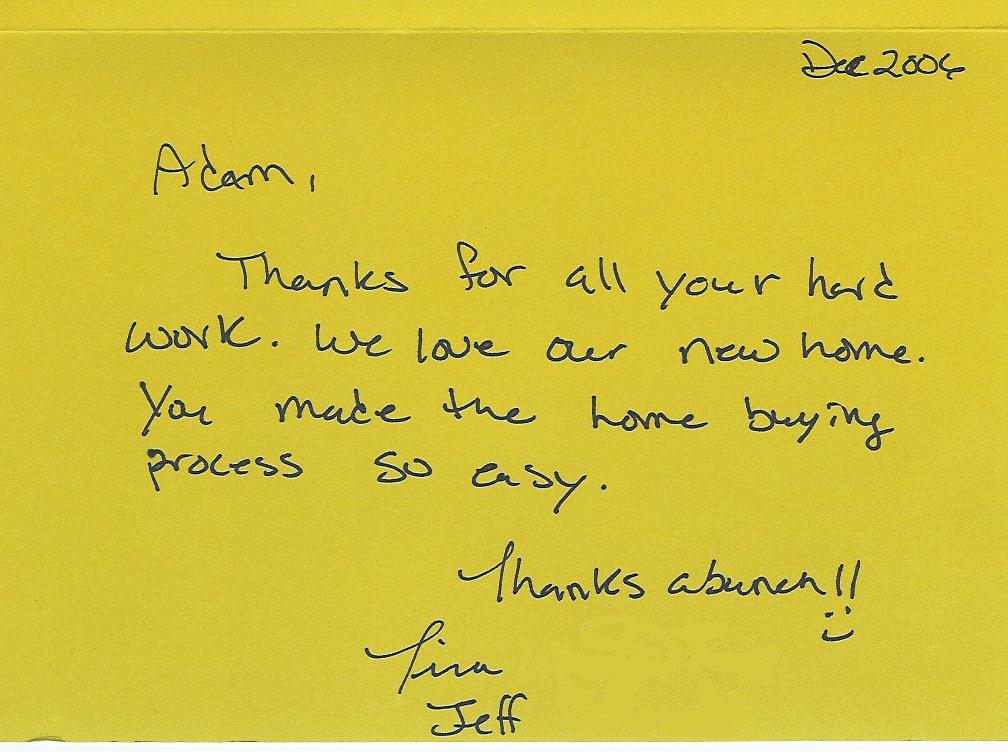 Dec 2006
Adam,
Thanks for all your hard
work. We love our new home.
You made the home buying
process so easy.
Thanks abunch!!
:)
Tina
Jeff